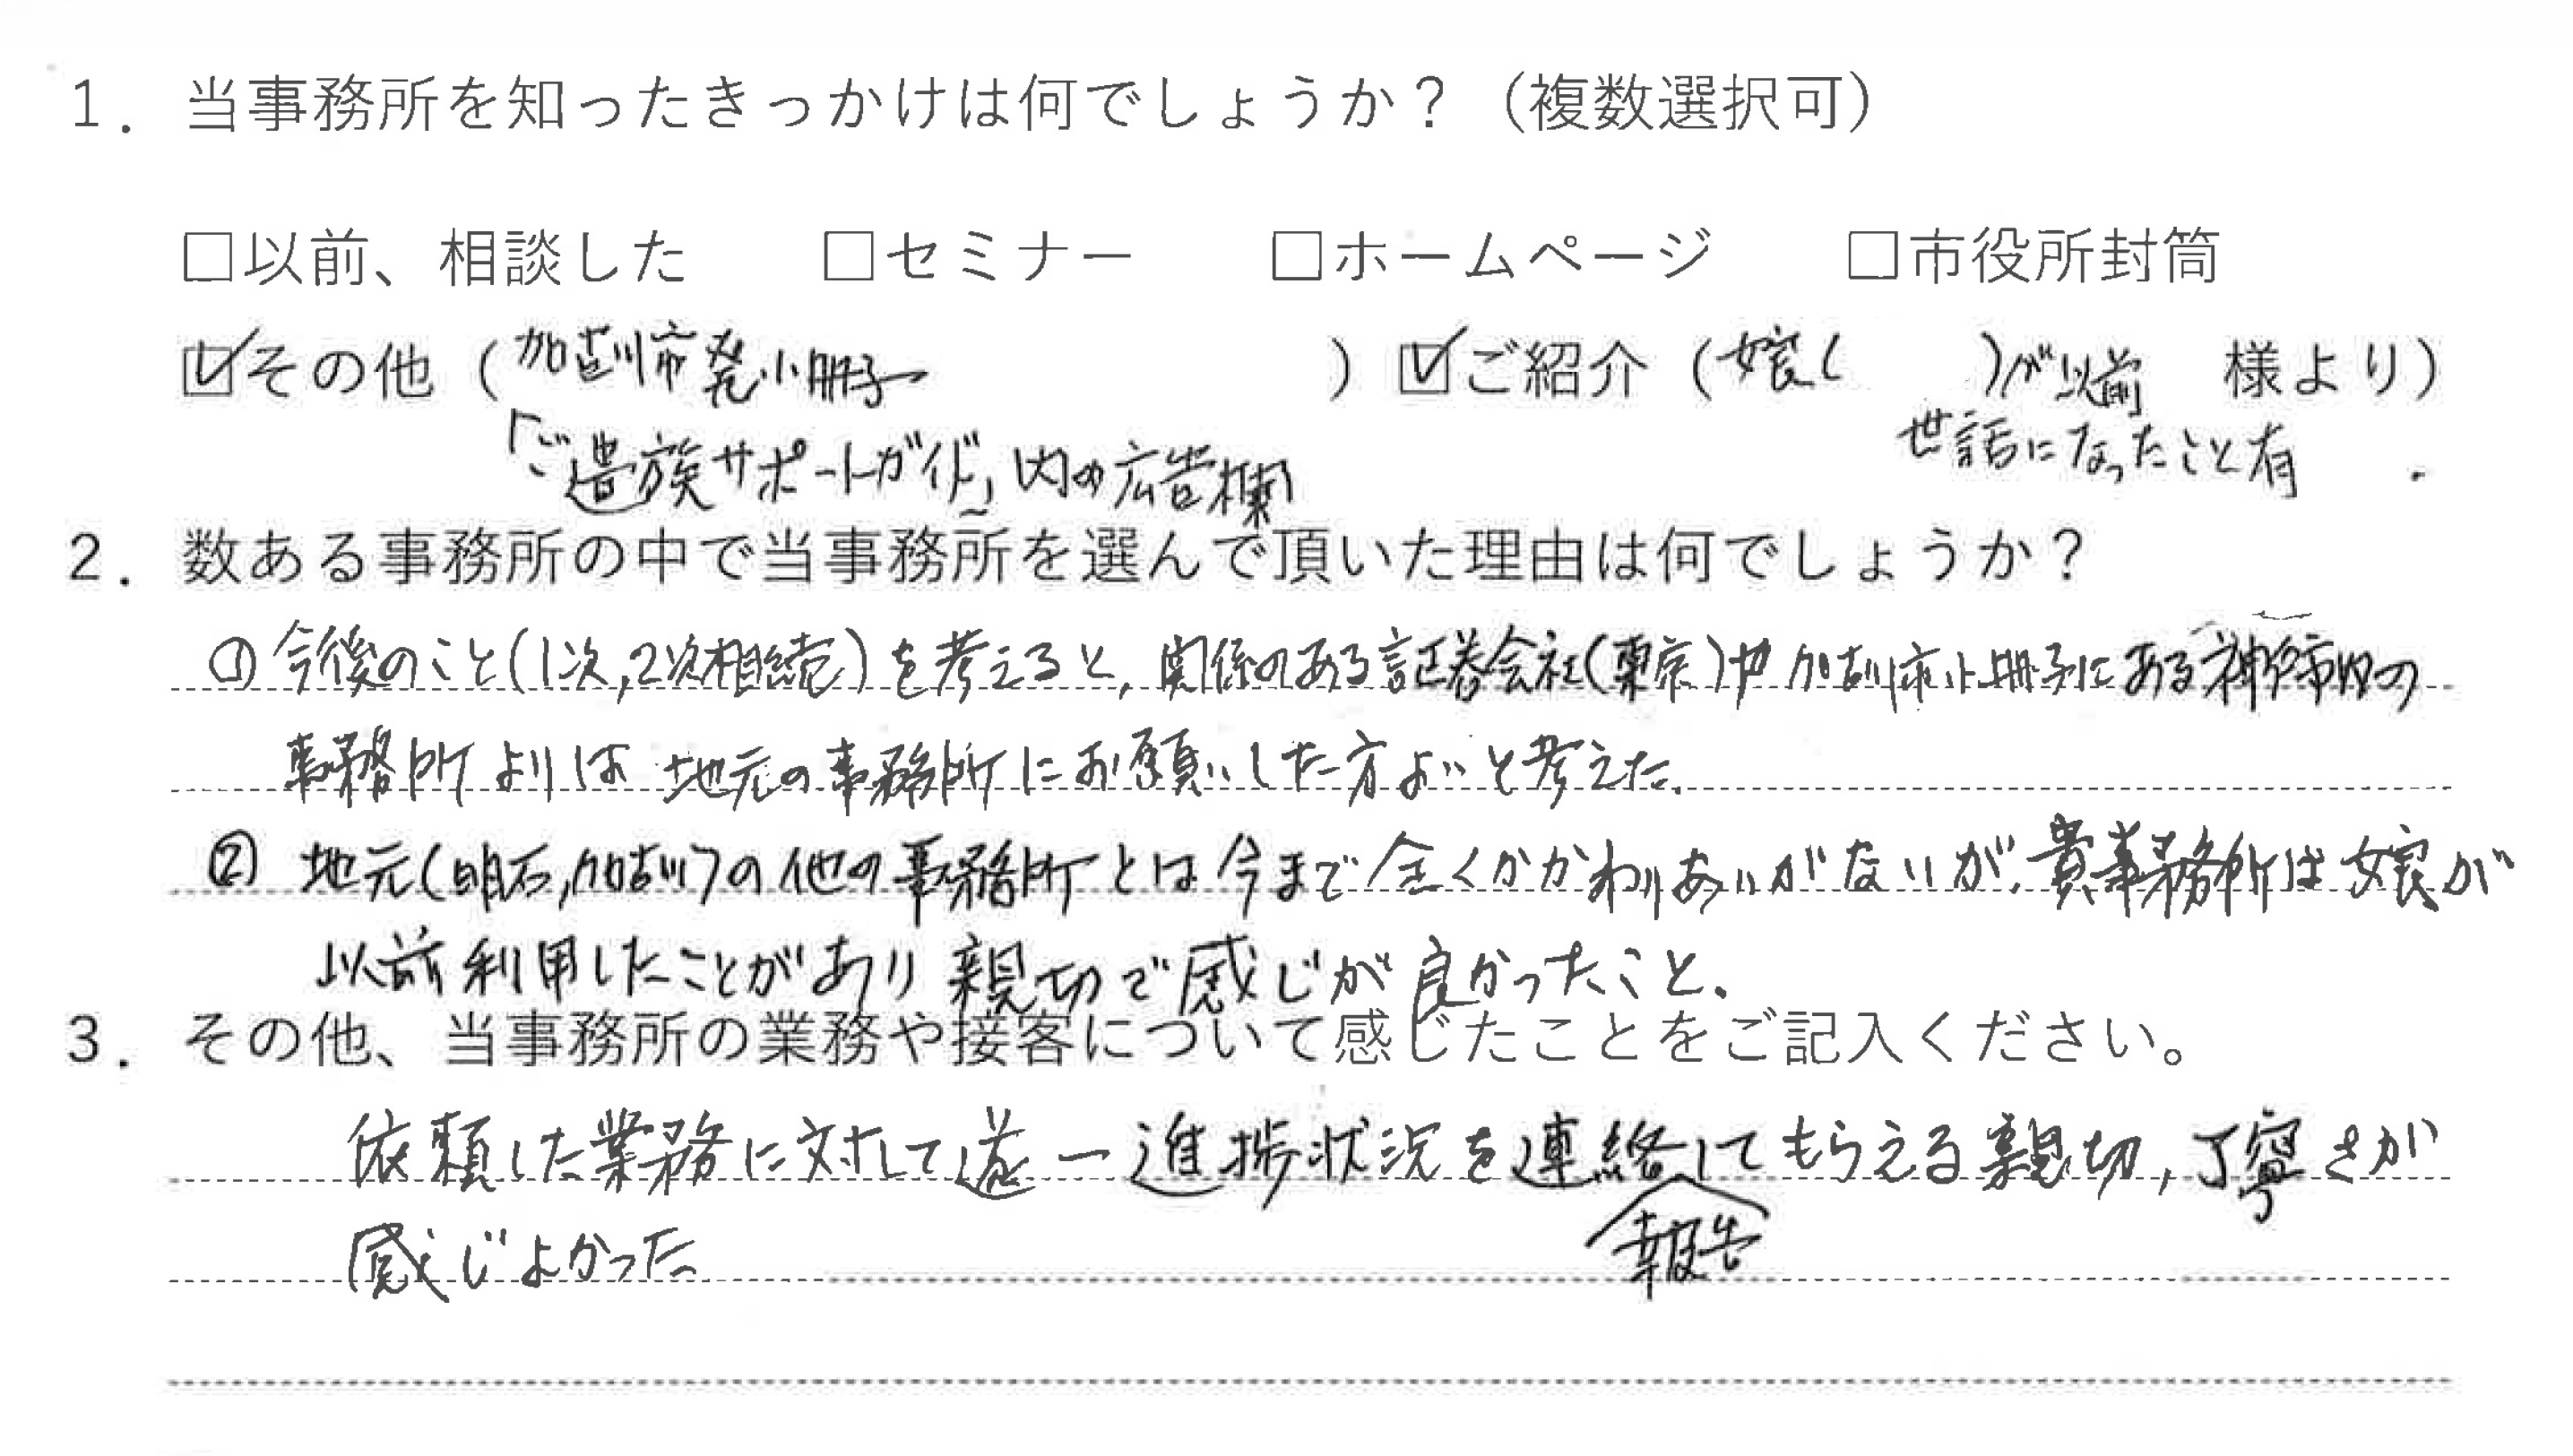 1. 当事務所を知ったきっかけは何でしょうか？（複数選択可）
□以前、相談した □セミナー □ホームページ □市役所封筒
☑その他（加古川市発小冊子 ）☑ご紹介（娘（ ）が以前 様より）
「ご遺族サポートガイド」内の広告欄 世話になったこと有
2. 数ある事務所の中で当事務所を選んで頂いた理由は何でしょうか？
① 今後のこと(1次,2次相続)を考えると,関係のある証券会社(東京)や加古川市小冊子にある神戸市内の
事務所よりは地元の事務所にお願いした方よいと考えた.
② 地元(明石,加古川)の他の事務所とは今まで全くかかわりあいがないが、貴事務所は娘が
以前利用したことがあり親切で感じが良かったこと、
3. その他、当事務所の業務や接客について感じたことをご記入ください。
依頼した業務に対して逐一進捗状況を連絡してもらえる親切,丁寧さが
報告
感じよかった